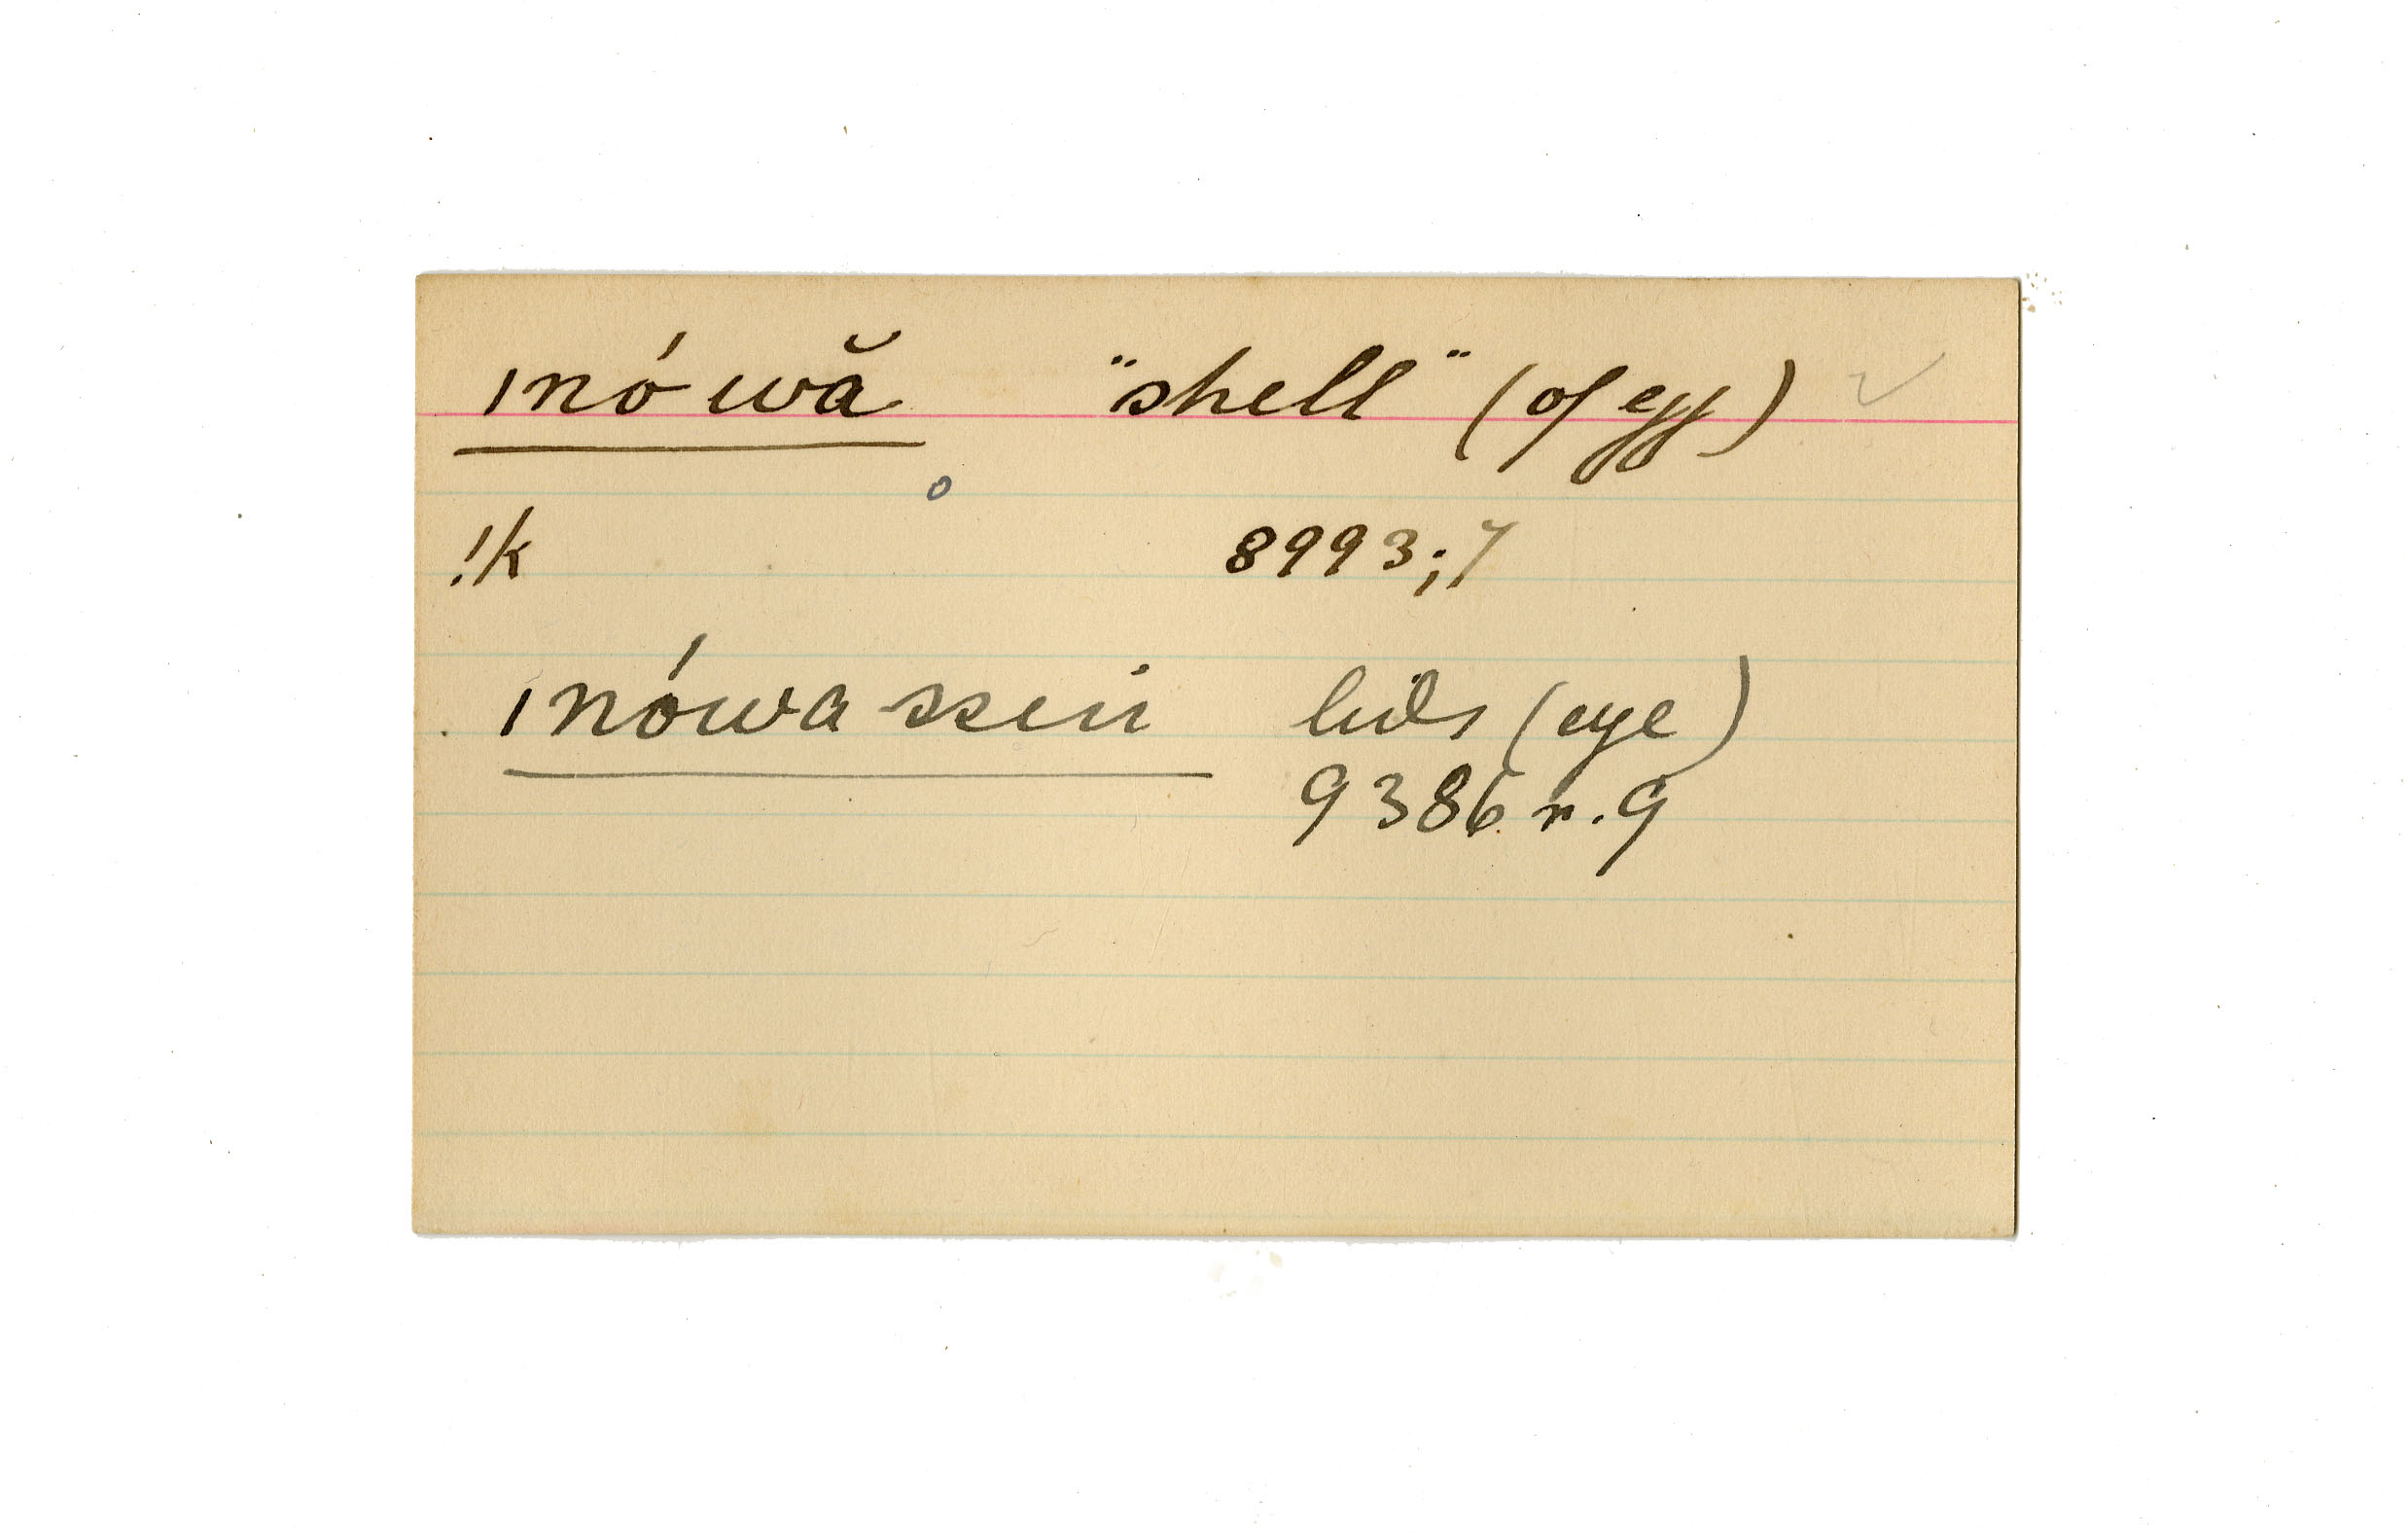 ınówă "shell" (of egg) ✓
!k 8993;7
ınówa ssın lids (eye)
9386 r.9